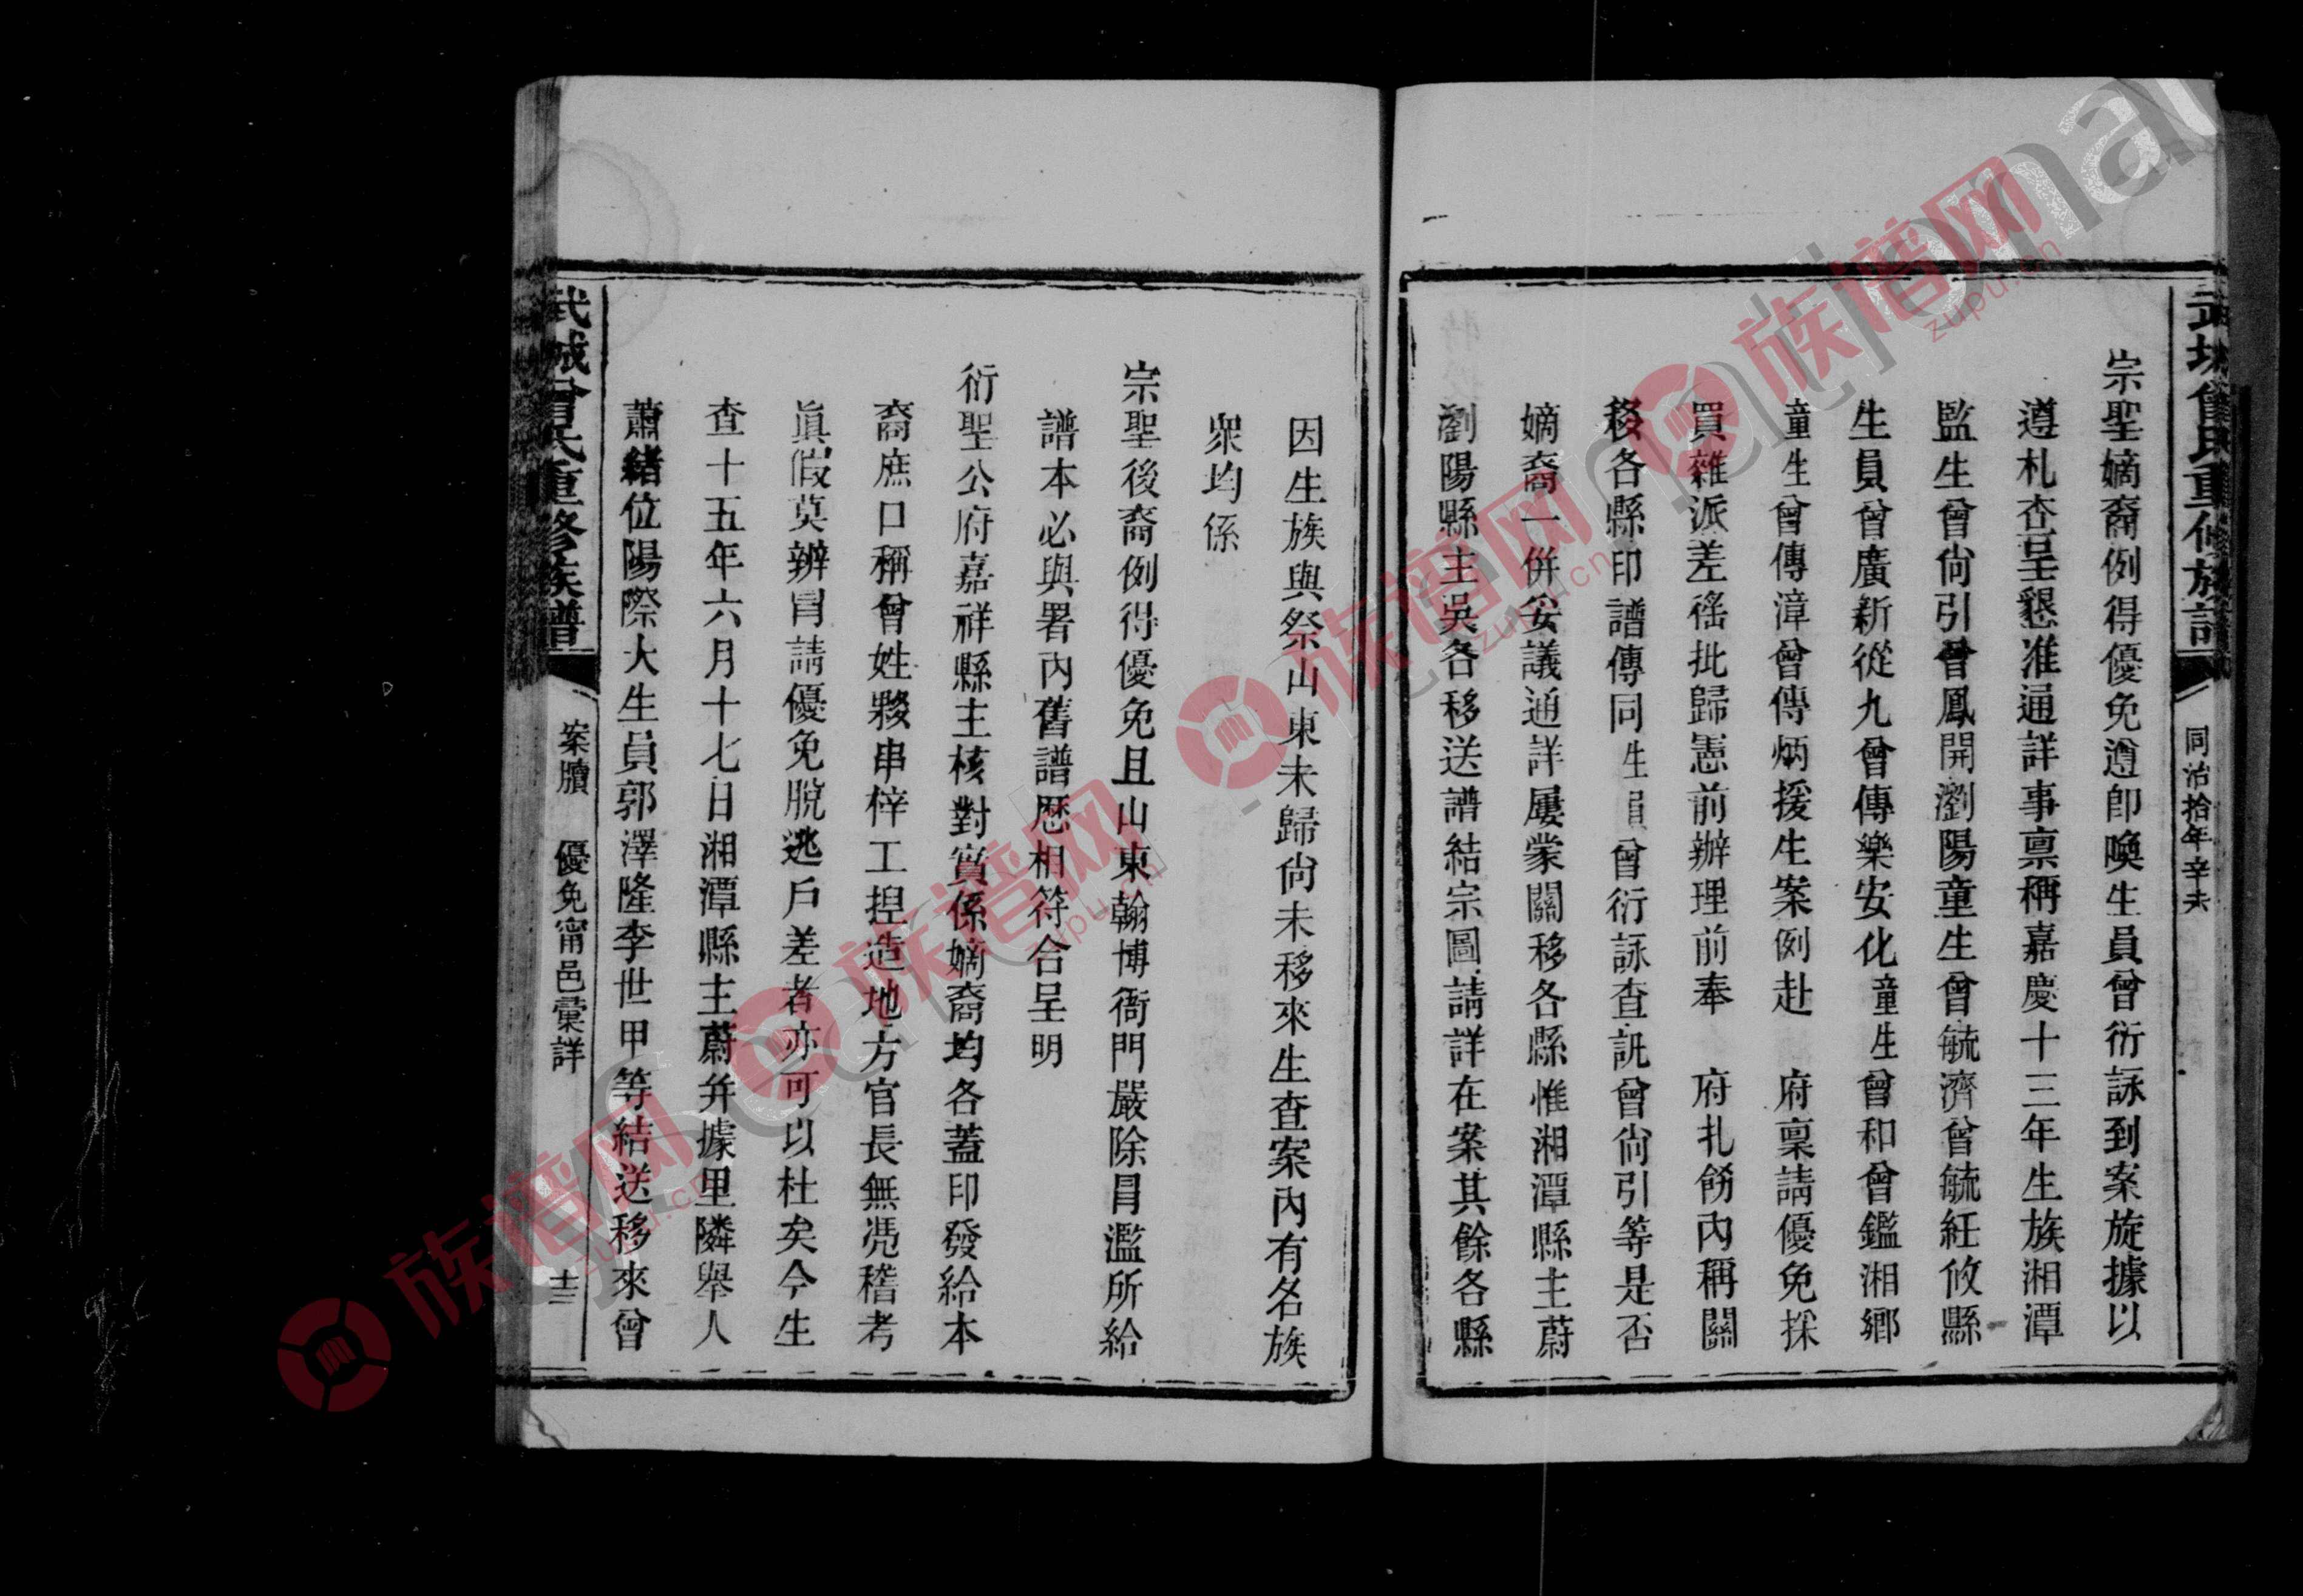 武城曾氏重修族譜
同治拾年辛未
宗聖嫡裔例得優免遵卽喚生員曾衍詠到案旋據以
遵札查呈懇准通詳事禀稱嘉慶十三年生族湘潭
監生曾尙引曾鳳開瀏陽童生曾毓濟曾毓紝攸縣
生員曾廣新從九曾傳樂安化童生曾和曾鑑湘鄉
童生曾傳漳曾傳炳援生案例赴 府稟請優免採
買雜派差徭批歸憲前辦理前奉 府札飭內稱關
移各縣印譜傳同生員曾衍詠查訊曾尙引等是否
嫡裔一併妥議通詳屢蒙關移各縣惟湘潭縣主蔚
瀏陽縣主吳各移送譜結宗圖請詳在案其餘各縣
因生族與祭山東未歸尙未移來生查案內有名族
衆均係
宗聖後裔例得優免且山東翰博衙門嚴除冒濫所給
譜本必與署內舊譜歷相符合呈明
衍聖公府嘉祥縣主核對實係嫡裔均各蓋印發給本
裔庶口稱曾姓夥串梓工揑造地方官長無凴稽考
眞假莫辨冐請優免脫逃戶差者亦可以杜矣今生
查十五年六月十七日湘潭縣主蔚幷據里隣舉人
蕭緒位陽際大生員郭澤隆李世甲等結送移來曾
武城曾氏重修族譜
案牘 優免甯邑彙詳
十三
族谱网
zupu.cn